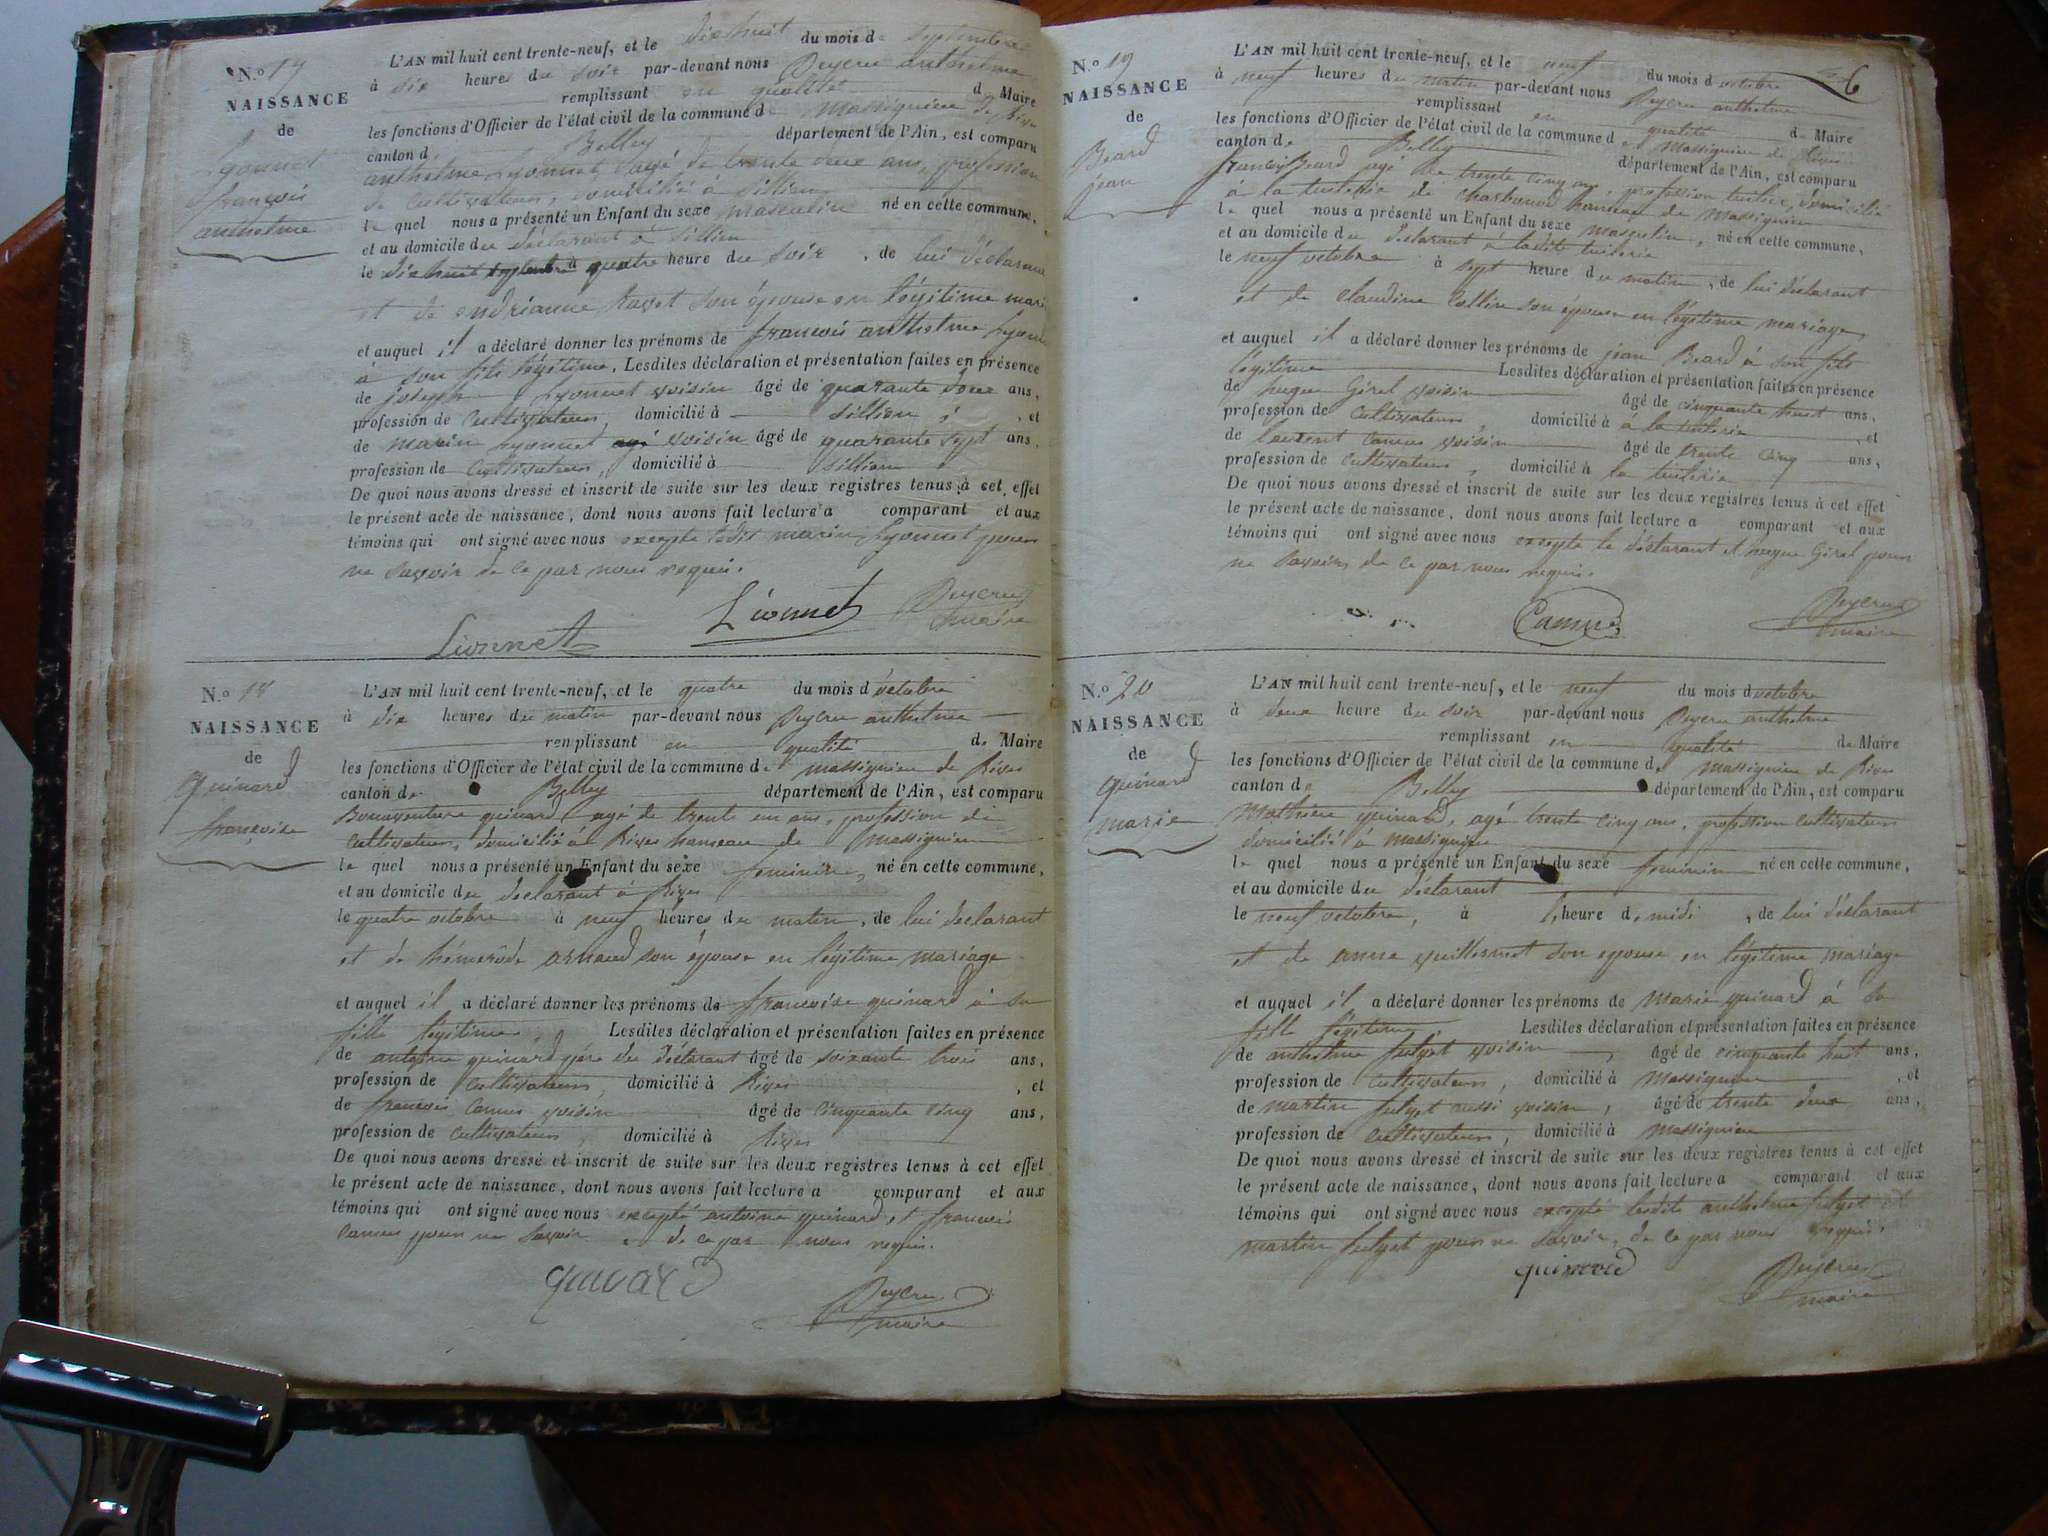 N.o 17
NAISSANCE
de
Lyonnet
françois
anthelme
L'AN mil huit cent trente-neuf, et le dixhuit du mois de septembre
à six heures du soir par-devant nous Peycru anthelme
remplissant en qualité de Maire
les fonctions d'Officier de l'état civil de la commune de Massignieu de Rives
canton de Belley département de l'Ain, est comparu
anthelme Lyonnet, agé de trente deux ans, profession
de cultivateur, domicilié à Sillieu
le quel nous a présenté un Enfant du sexe masculin né en cette commune,
et au domicile du déclarant à Sillieu
le dixhuit septembre à quatre heure du soir, de lui déclarant
et de andrianne son épouse en légitime mari
et auquel il a déclaré donner les prénoms de françois anthelme Lyonnet
à son fils légitime. Lesdites déclaration et présentation faites en présence
de joseph Lyonnet voisin âgé de quarante deux ans,
profession de cultivateur, domicilié à Sillieu, et
de marin Lyonnet agé voisin âgé de quarante sept ans,
profession de cultivateur, domicilié à Sillieu
De quoi nous avons dressé et inscrit de suite sur les deux registres tenus à cet effet
le présent acte de naissance, dont nous avons fait lecture a comparant et aux
témoins qui ont signé avec nous excepté ledit marin Lyonnet pour
ne savoir de ce par nous requis.
Lionnet
Lionnet
Peycru
maire
N.o 18
NAISSANCE
de
quinard
françoise
L'AN mil huit cent trente-neuf, et le quatre du mois d'octobre
à dix heures du matin par-devant nous Peycru anthelme
remplissant en qualité de Maire
les fonctions d'Officier de l'état civil de la commune de massignieu de Rives
canton de Belley département de l'Ain, est comparu
Bonaventure quinard agé de trente un ans, profession de
cultivateur, domicilié à Rives hameau de Massignieu
le quel nous a présenté un Enfant du sexe féminin, né en cette commune,
et au domicile du déclarant à Rives
le quatre octobre à neuf heures du matin, de lui déclarant
et de arnaud son épouse en légitime mariage
et auquel il a déclaré donner les prénoms de françoise quinard à sa
fille légitime. Lesdites déclaration et présentation faites en présence
de antoine quinard père du déclarant âgé de soixante trois ans,
profession de cultivateur, domicilié à Rives, et
de françois Camus voisin âgé de cinquante cinq ans,
profession de cultivateur, domicilié à Rives
De quoi nous avons dressé et inscrit de suite sur les deux registres tenus à cet effet
le présent acte de naissance, dont nous avons fait lecture a comparant et aux
témoins qui ont signé avec nous excepté antoine quinard et francois
Camus pour ne savoir de ce par nous requis.
quinard
Peycru
maire
6
N.o 19
NAISSANCE
de
Beard
jean
L'AN mil huit cent trente-neuf, et le neuf du mois d octobre
à neuf heures du matin par-devant nous Peycru anthelme
remplissant en qualité de Maire
les fonctions d'Officier de l'état civil de la commune de Massignieu de Rives
canton de Belley département de l'Ain, est comparu
françois Beard agé de trente cinq ans, profession tuilier, domicilié
à la tuilerie de hameau de Massignieu
le quel nous a présenté un Enfant du sexe masculin, né en cette commune,
et au domicile du déclarant à ladite tuilerie
le neuf octobre à sept heure du matin, de lui déclarant
et de claudine Collin son épouse en légitime mariage,
et auquel il a déclaré donner les prénoms de jean Beard à son fils
légitime Lesdites déclaration et présentation faites en présence
de hugue Girel voisin âgé de cinquante huit ans,
profession de cultivateur domicilié à à la tuilerie, et
de laurent Camus voisin âgé de trente cinq ans,
profession de cultivateur, domicilié à la tuilerie
De quoi nous avons dressé et inscrit de suite sur les deux registres tenus à cet effet
le présent acte de naissance, dont nous avons fait lecture a comparant et aux
témoins qui ont signé avec nous excepté le déclarant et hugue Girel pour
ne savoir, de ce par nous requis.
Camus
Peycru
maire
N.o 20
NAISSANCE
de
quinard
marie
L'AN mil huit cent trente-neuf, et le neuf du mois d octobre
à deux heure du soir par-devant nous Peycru anthelme
remplissant en qualité de Maire
les fonctions d'Officier de l'état civil de la commune de Massignieu de Rives
canton de Belley département de l'Ain, est comparu
quinard, agé trente cinq ans, profession cultivateur
domicilié à Massignieu
le quel nous a présenté un Enfant du sexe féminin né en cette commune,
et au domicile du déclarant
le neuf octobre, à l'heure de midi, de lui déclarant
et de anne guillermet son épouse en légitime mariage
et auquel il a déclaré donner les prénoms de marie quinard à sa
fille légitime. Lesdites déclaration et présentation faites en présence
de anthelme voisin, âgé de cinquante huit ans,
profession de cultivateur, domicilié à Massignieu, et
de martin aussi voisin, âgé de trente deux ans,
profession de cultivateur, domicilié à Massignieu
De quoi nous avons dressé et inscrit de suite sur les deux registres tenus à cet effet
le présent acte de naissance, dont nous avons fait lecture a comparant et aux
témoins qui ont signé avec nous excepté lesdits anthelme et
martin pour ne savoir, de ce par nous requis.
quinard
Peycru
maire